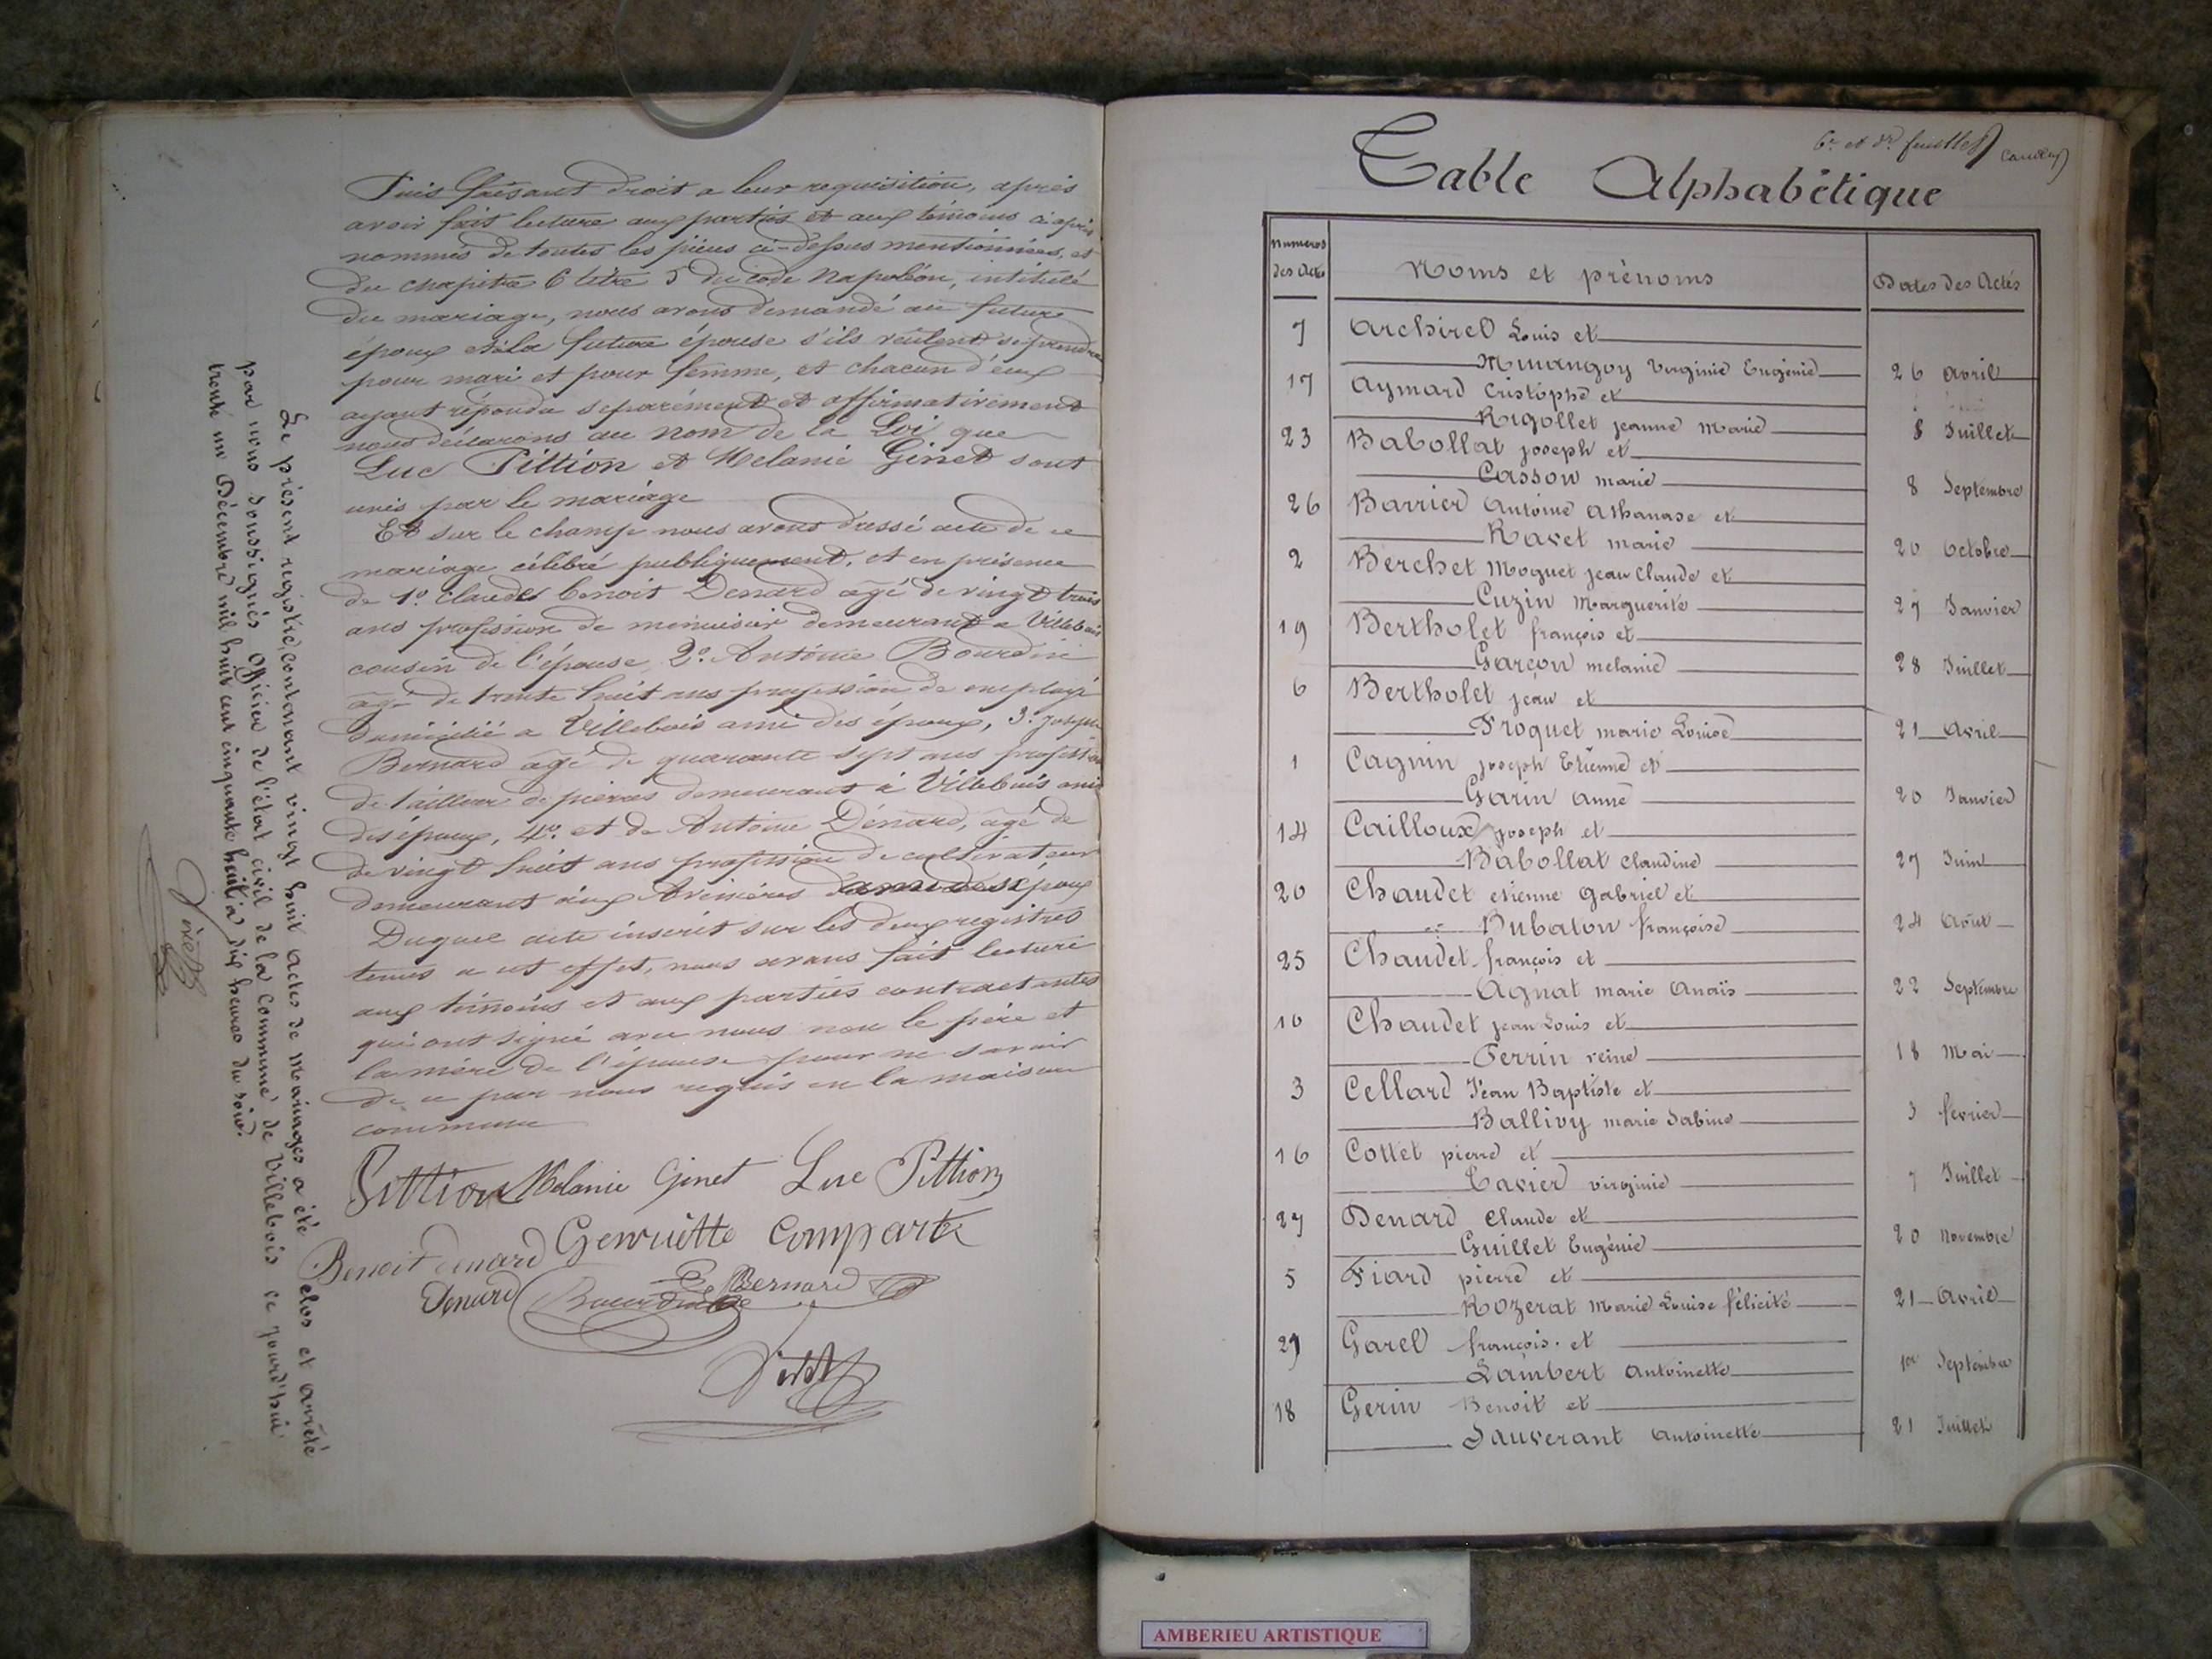 Puis faisant droit a leur requisition, après
avoir fait lecture aux parties et aux témoins ci après
nommés de toutes les pièces ci-dessus mentionnées, et
du chapitre 6 titre 5 du code Napoléon, intitulé
du mariage, nous avons demandé au futur
époux et à la future épouse s'ils veulent se prendre
pour mari et pour femme, et chacun d'eux
ayant répondu séparément et affirmativement
nous déclarons au nom de la Loi que
Luc Pittion et Melanie Ginet sont
unis par le mariage
Et sur le champ nous avons dressé acte de ce
mariage célébré publiquement, et en présence
de 1º. Claude benoit Denard âgé de vingt trois
ans profession de menuisier demeurant a Villebois
cousin de l'épouse 2º. Antoine Bourdin
âgé de trente huit ans profession de employé
domicilié a Villebois ami des époux, 3º. Joseph
Bernard âgé de quarante sept ans profession
de tailleur de pierres demeurant à Villebois ami
des époux, 4º. et de Antoine Dénard, âgé de
de vingt huit ans profession de cultivateur
demeurant aux Avenières ami des époux
Duquel acte inscrit sur les deux registres
tenus a cet effet, nous avons fait lecture
aux témoins et aux parties contractantes
qui ont signé avec nous non le père et
la mère de l'épouse pour ne savoir
de ce par nous requis en la maison
commune
Pittion Melanie Ginet Luc Pittion
Benoit denard Genriette Compart
Denard Bourdin Bernard
Le présent registre contenant vingt huit actes de mariages a été clos et arrêté
par nous soussignés Officier de l'état civil de la commune de Villebois ce jourd'hui
trente un Décembre mil huit cent cinquante huit à dix heures du soir.
6e et dr feuillet
Table Alphabétique
Numeros des Actes Noms et prénoms Dates des Actes
7 Archirel Louis et
Minangoy Virginie Eugénie 26 avril
17 Aymard Cristophe et
Rigollet jeanne Marie 8 Juillet
23 Babollat joseph et
Casson marie 8 Septembre
26 Barrier Antoine Athanase et
Ravet marie 20 Octobre
2 Berchet Moguet jean Claude et
Cuzin Marguerite 27 Janvier
19 Bertholet françois et
Garçon melanie 28 Juillet
6 Bertholet jean et
Froquet marie Louise 21 Avril
1 Cagnin joseph Etienne et
Garin anne 20 Janvier
14 Cailloux joseph et
Babollat Claudine 27 Juin
20 Chaudet etienne Gabriel et
Bubaton françoise 24 Août
25 Chaudet françois et
Agnat marie Anaïs 22 Septembre
10 Chaudet jean Louis et
Perrin reine 18 Mai
3 Cellard Jéan Baptiste et
Ballivy marie Sabine 3 fevrier
16 Cottet pierre et
Tavier virginie 7 Juillet
27 Denard Claude et
Guillet Eugénie 20 Novembre
5 Fiard pierre et
Rozerat Marie Louise félicité 21 Avril
21 Garel françois et
Lambert Antoinette 1er Septembre
18 Gerin Benoit et
Sauverant Antoinette 21 Juillet
AMBERIEU ARTISTIQUE